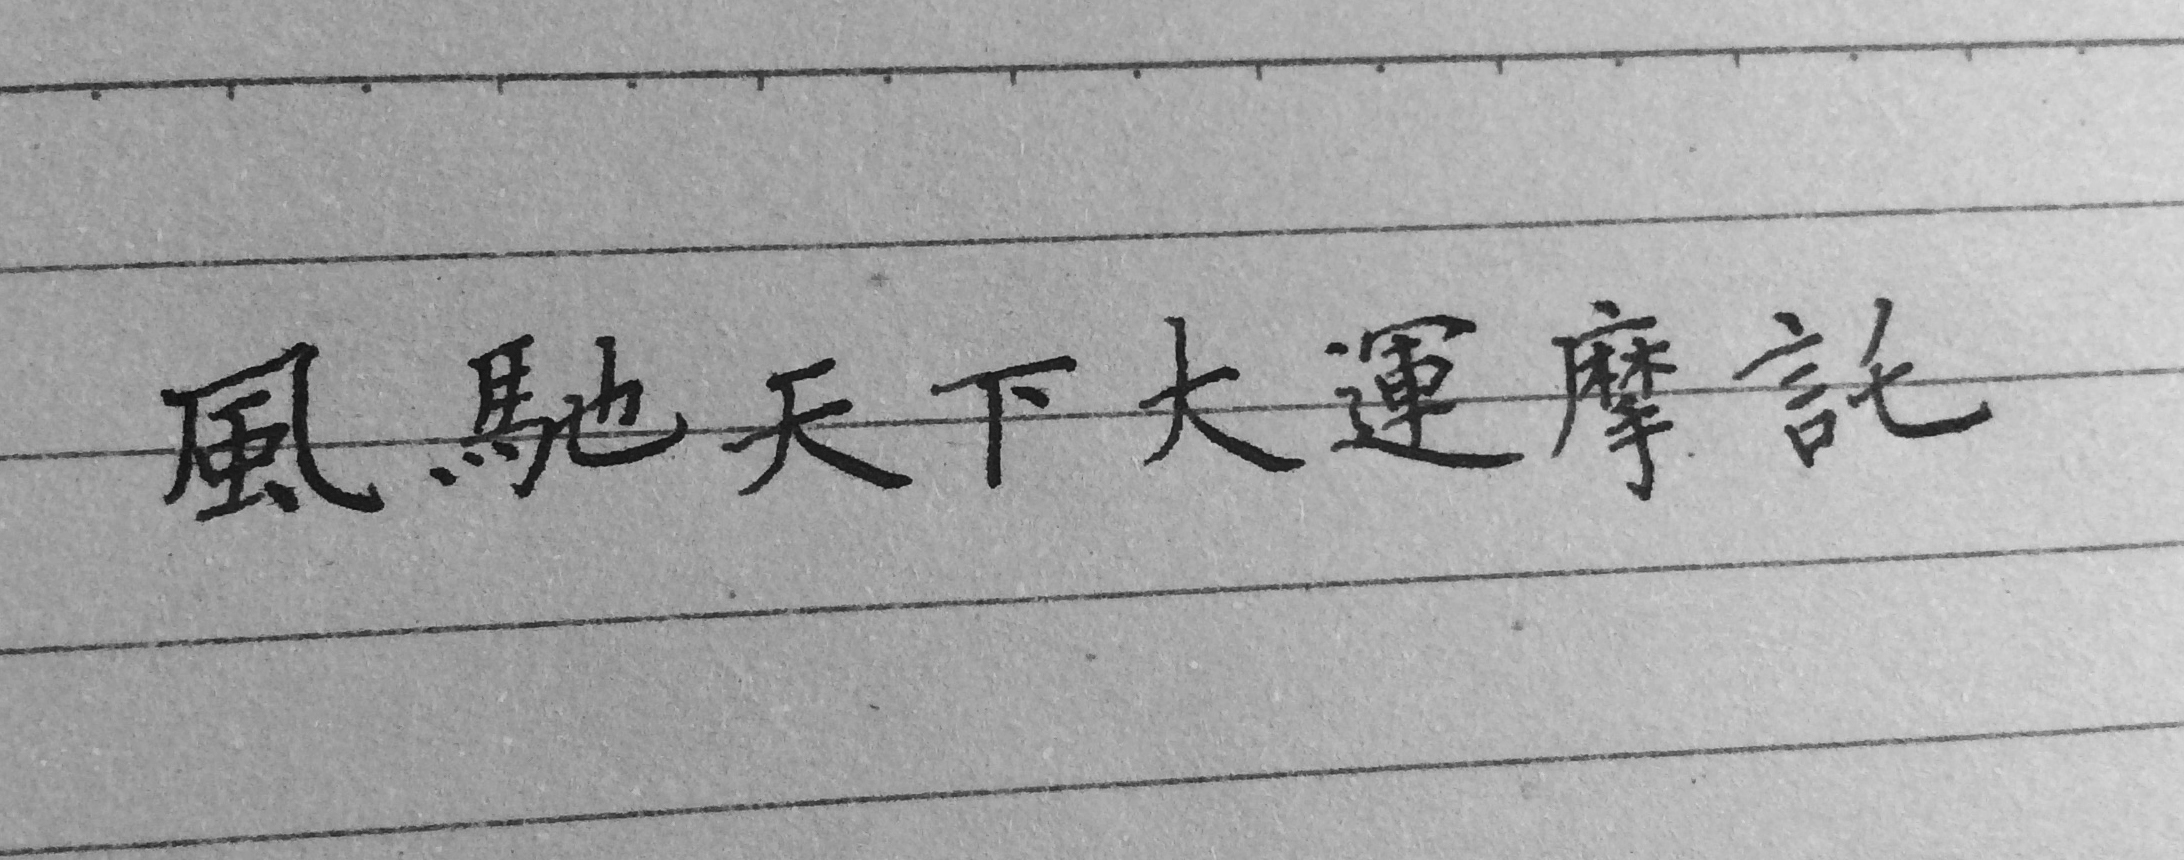 風馳天下大運摩託